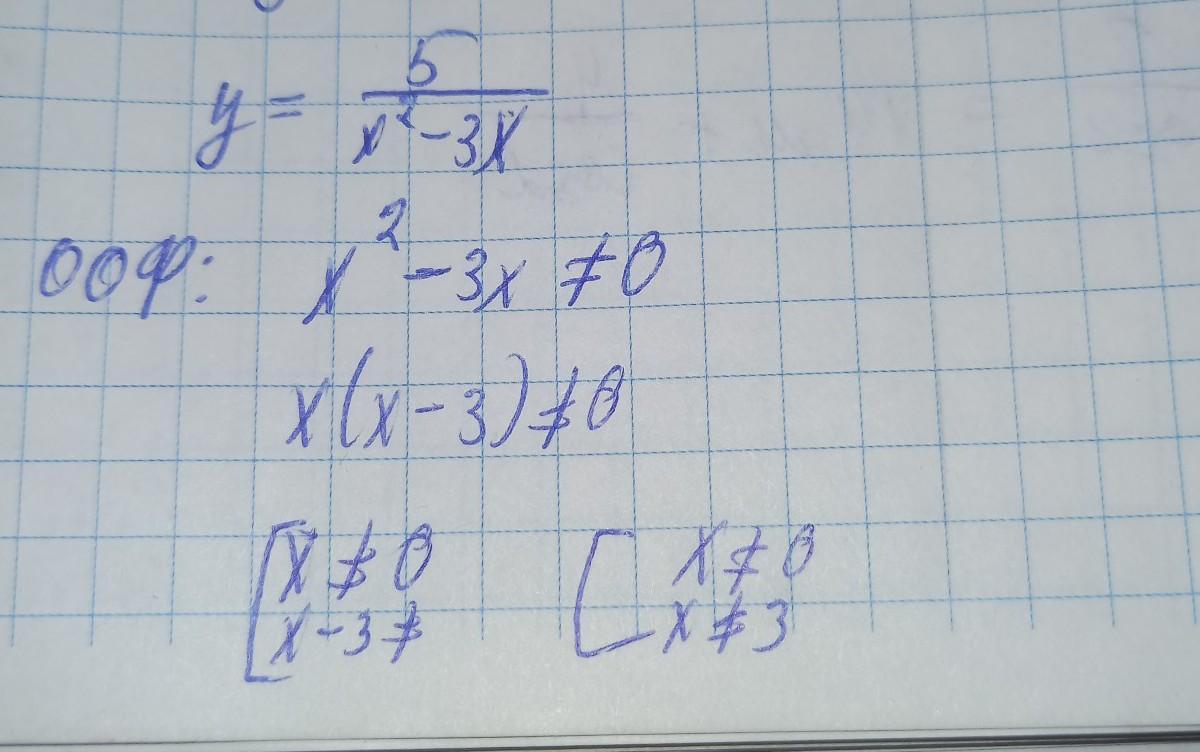 y = 5/(x² - 3x)
ООФ: x² - 3x ≠ 0
x(x - 3) ≠ 0
[ x ≠ 0 [ x ≠ 0
x - 3 ≠ x ≠ 3